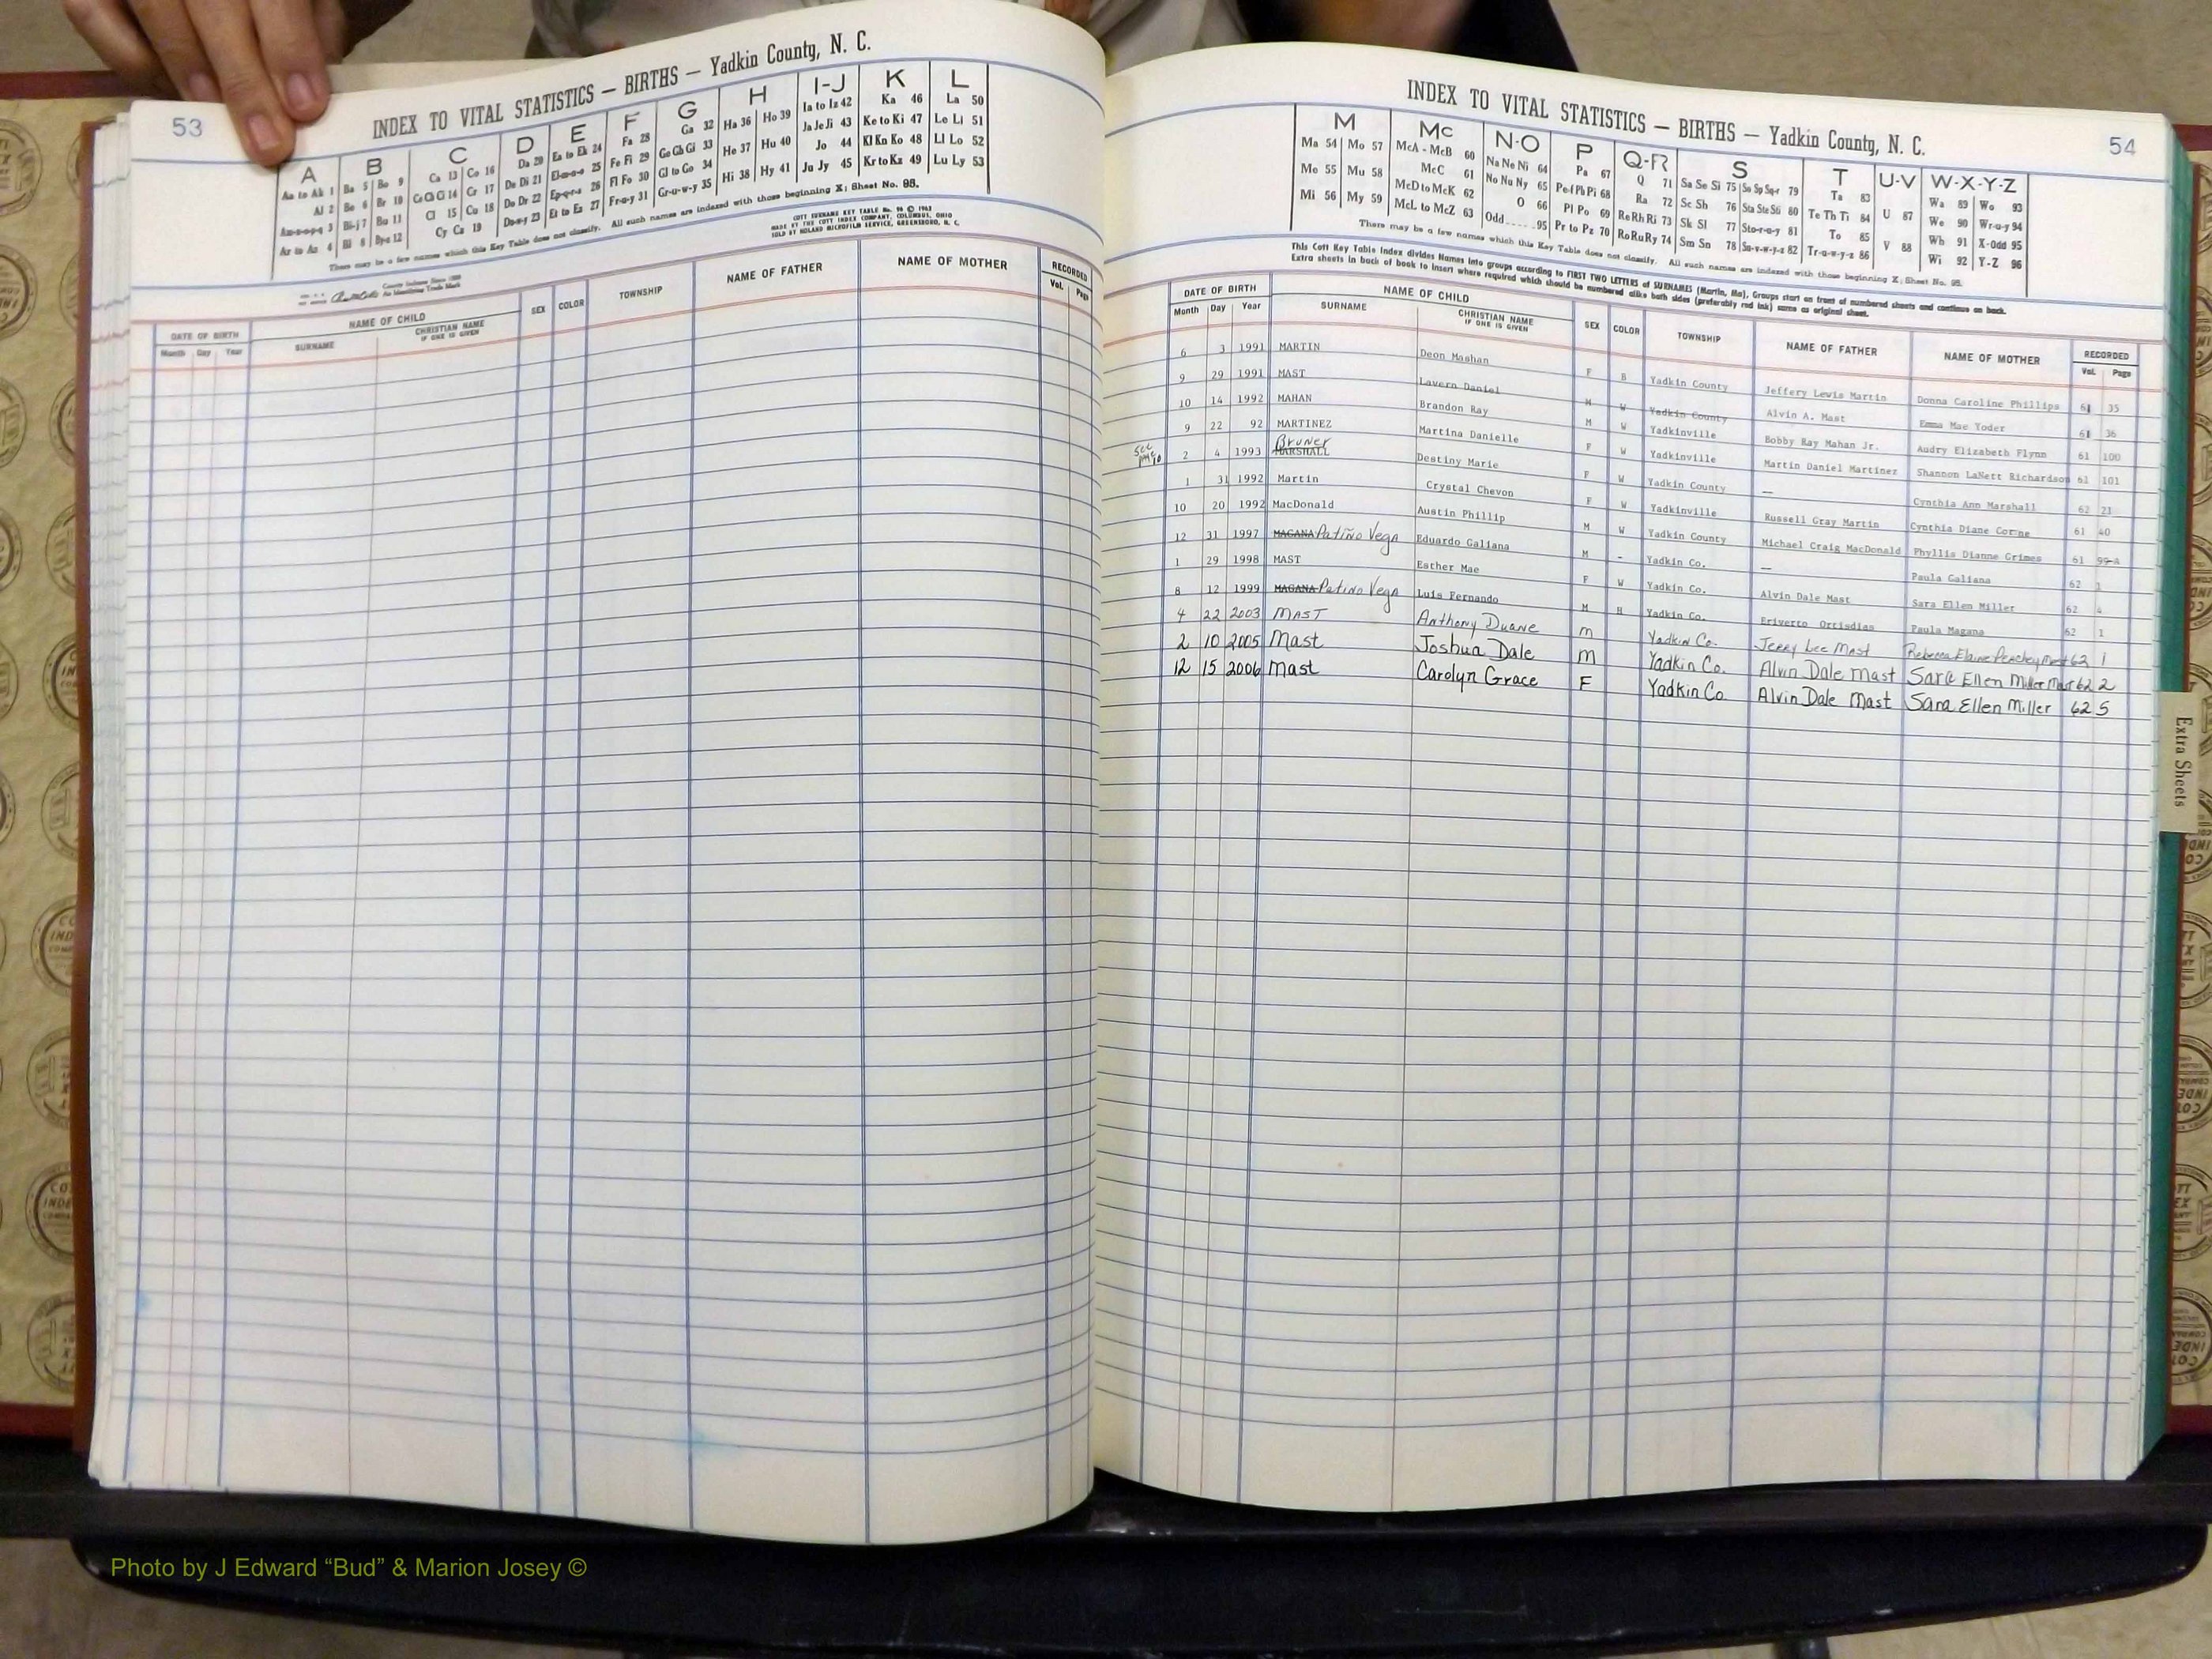 53
INDEX TO VITAL STATISTICS — BIRTHS — Yadkin County, N. C.
A B C D E F G H I-J K L
Aa to Ak 1 Ba 5 Bo 9 Ca 13 Co 16 Da 20 Ea to Ek 24 Fa 28 Ga 32 Ha 36 Ho 39 Ia to Iz 42 Ka 46 La 50
Al 2 Be 6 Br 10 Ce Ch Ci 14 Cr 17 De Di 21 El-m-n-o 25 Fe Fi 29 Ge Gh Gi 33 He 37 Hu 40 Ja Je Ji 43 Ke to Ki 47 Le Li 51
Am-n-o-p-q 3 Bi-j 7 Bu 11 Cl 15 Cu 18 Do Dr 22 Ep-q-r-s 26 Fl Fo 30 Gl to Go 34 Hi 38 Hy 41 Jo 44 Kl Kn Ko 48 Ll Lo 52
Ar to Az 4 Bl 8 By-z 12 Cy Cz 19 Du-w-y 23 Et to Ez 27 Fr-u-y 31 Gr-u-w-y 35 Ju Jy 45 Kr to Kz 49 Lu Ly 53
There may be a few names which this Key Table does not classify. All such names are indexed with those beginning X; Sheet No. 95.
COTT SURNAME KEY TABLE No. 96 © 1963
MADE BY THE COTT INDEX COMPANY, COLUMBUS, OHIO
SOLD BY ROLAND MICROFILM SERVICE, GREENSBORO, N. C.
County Indexes Since 1888
An Identifying Trade Mark
DATE OF BIRTH NAME OF CHILD SEX COLOR TOWNSHIP NAME OF FATHER NAME OF MOTHER RECORDED
Month Day Year SURNAME CHRISTIAN NAME IF ONE IS GIVEN Vol. Page
54
INDEX TO VITAL STATISTICS — BIRTHS — Yadkin County, N. C.
M Mc N-O P Q-R S T U-V W-X-Y-Z
Ma 54 Mo 57 McA - McB 60 Na Ne Ni 64 Pa 67 Q 71 Sa Se Si 75 So Sp Sq-r 79 Ta 83 U 87 Wa 89 Wo 93
Me 55 Mu 58 McC 61 No Nu Ny 65 Pe-f Ph Pi 68 Ra 72 Sc Sh 76 Sta Ste Sti 80 Te Th Ti 84 V 88 We 90 Wr-u-y 94
Mi 56 My 59 McD to McK 62 O 66 Pl Po 69 Re Rh Ri 73 Sk Sl 77 Sto-r-u-y 81 To 85 Wh 91 X-Odd 95
McL to McZ 63 Odd 95 Pr to Pz 70 Ro Ru Ry 74 Sm Sn 78 Su-v-w-y-z 82 Tr-u-w-y-z 86 Wi 92 Y-Z 96
There may be a few names which this Key Table does not classify. All such names are indexed with those beginning X; Sheet No. 95.
This Cott Key Table Index divides Names into groups according to FIRST TWO LETTERS of SURNAMES (Martin, Ma). Groups start on front of numbered sheets and continue on back.
Extra sheets in back of book to insert where required which should be numbered alike both sides (preferably red ink) same as original sheet.
DATE OF BIRTH NAME OF CHILD SEX COLOR TOWNSHIP NAME OF FATHER NAME OF MOTHER RECORDED
Month Day Year SURNAME CHRISTIAN NAME IF ONE IS GIVEN Vol. Page
6 3 1991 MARTIN Deon Mashan F B Yadkin County Jeffery Lewis Martin Donna Caroline Phillips 61 35
9 29 1991 MAST Lavern Daniel M W Yadkin County Alvin A. Mast Emma Mae Yoder 61 36
10 14 1992 MAHAN Brandon Ray M W Yadkinville Bobby Ray Mahan Jr. Audry Elizabeth Flynn 61 100
9 22 92 MARTINEZ Martina Danielle F W Yadkinville Martin Daniel Martinez Shannon LaNett Richardson 61 101
see page 10 2 4 1993 Bruner MARSHALL Destiny Marie F W Yadkin County — Cynthia Ann Marshall 62 21
1 31 1992 Martin Crystal Chevon F W Yadkinville Russell Gray Martin Cynthia Diane Corne 61 40
10 20 1992 MacDonald Austin Phillip M W Yadkin County Michael Craig MacDonald Phyllis Dianne Grimes 61 99-A
12 31 1997 MAGANA Patiño Vega Eduardo Galiana M - Yadkin Co. — Paula Galiana 62 1
1 29 1998 MAST Esther Mae F W Yadkin Co. Alvin Dale Mast Sara Ellen Miller 62 4
8 12 1999 MAGANA Patino Vega Luis Fernando M H Yadkin Co. Eriverto Paula Magana 62 1
4 22 2003 MAST Anthony Duane m Yadkin Co. Jerry Lee Mast Rebecca Elaine Peachey Mast 62 1
2 10 2005 Mast Joshua Dale m Yadkin Co. Alvin Dale Mast Sara Ellen Miller Mast 62 2
12 15 2006 Mast Carolyn Grace F Yadkin Co Alvin Dale Mast Sara Ellen Miller 62 5
Extra Sheets
Photo by J Edward “Bud” & Marion Josey ©